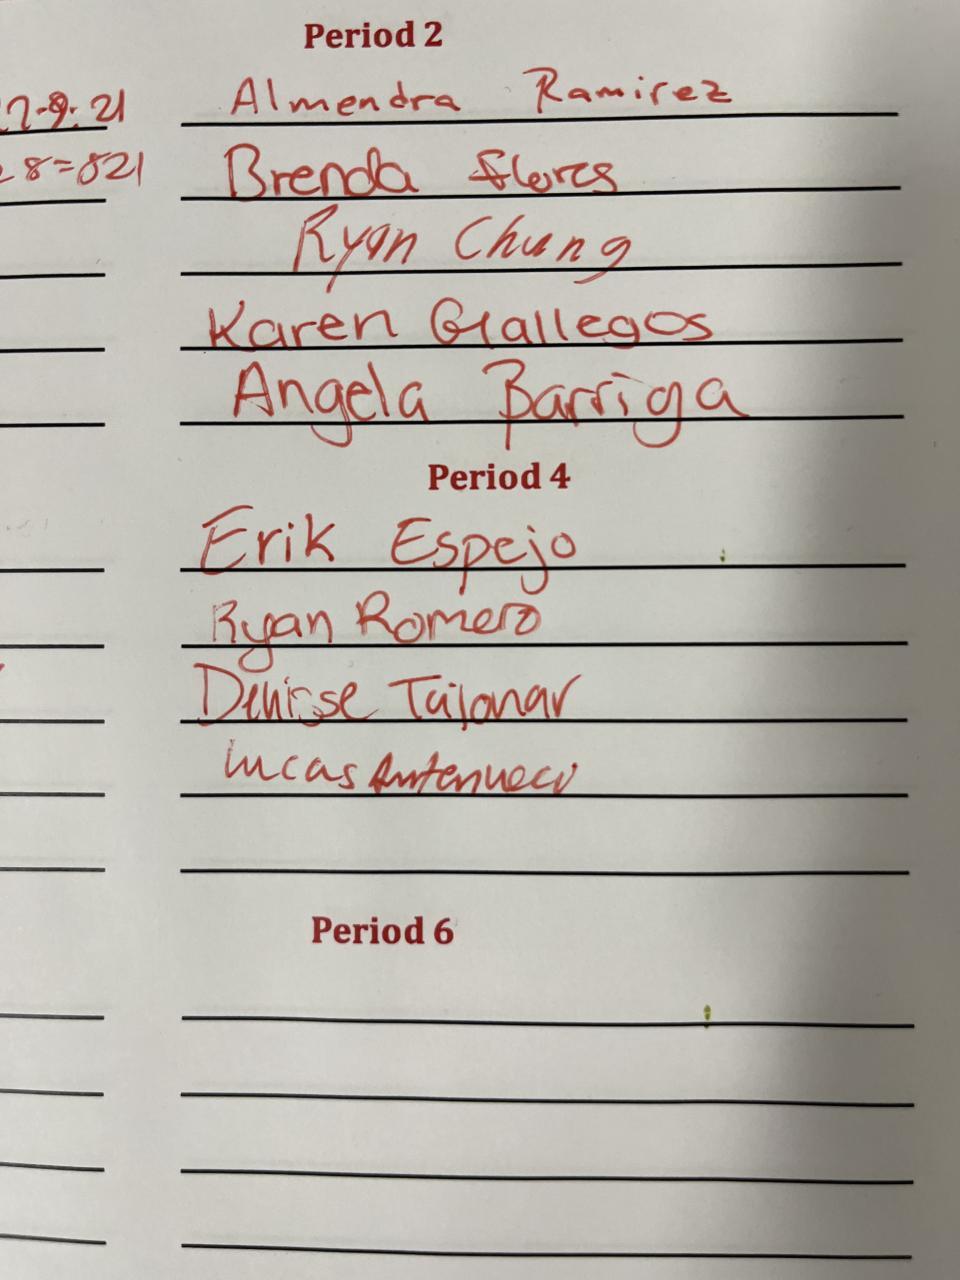 Period 2
Almendra Ramirez
8=821
Brenda flores
Ryan Chung
Karen Gallegos
Angela Barriga
Period 4
Erik Espejo
Ryan Romero
Denisse Tajonar
Lucas
Period 6